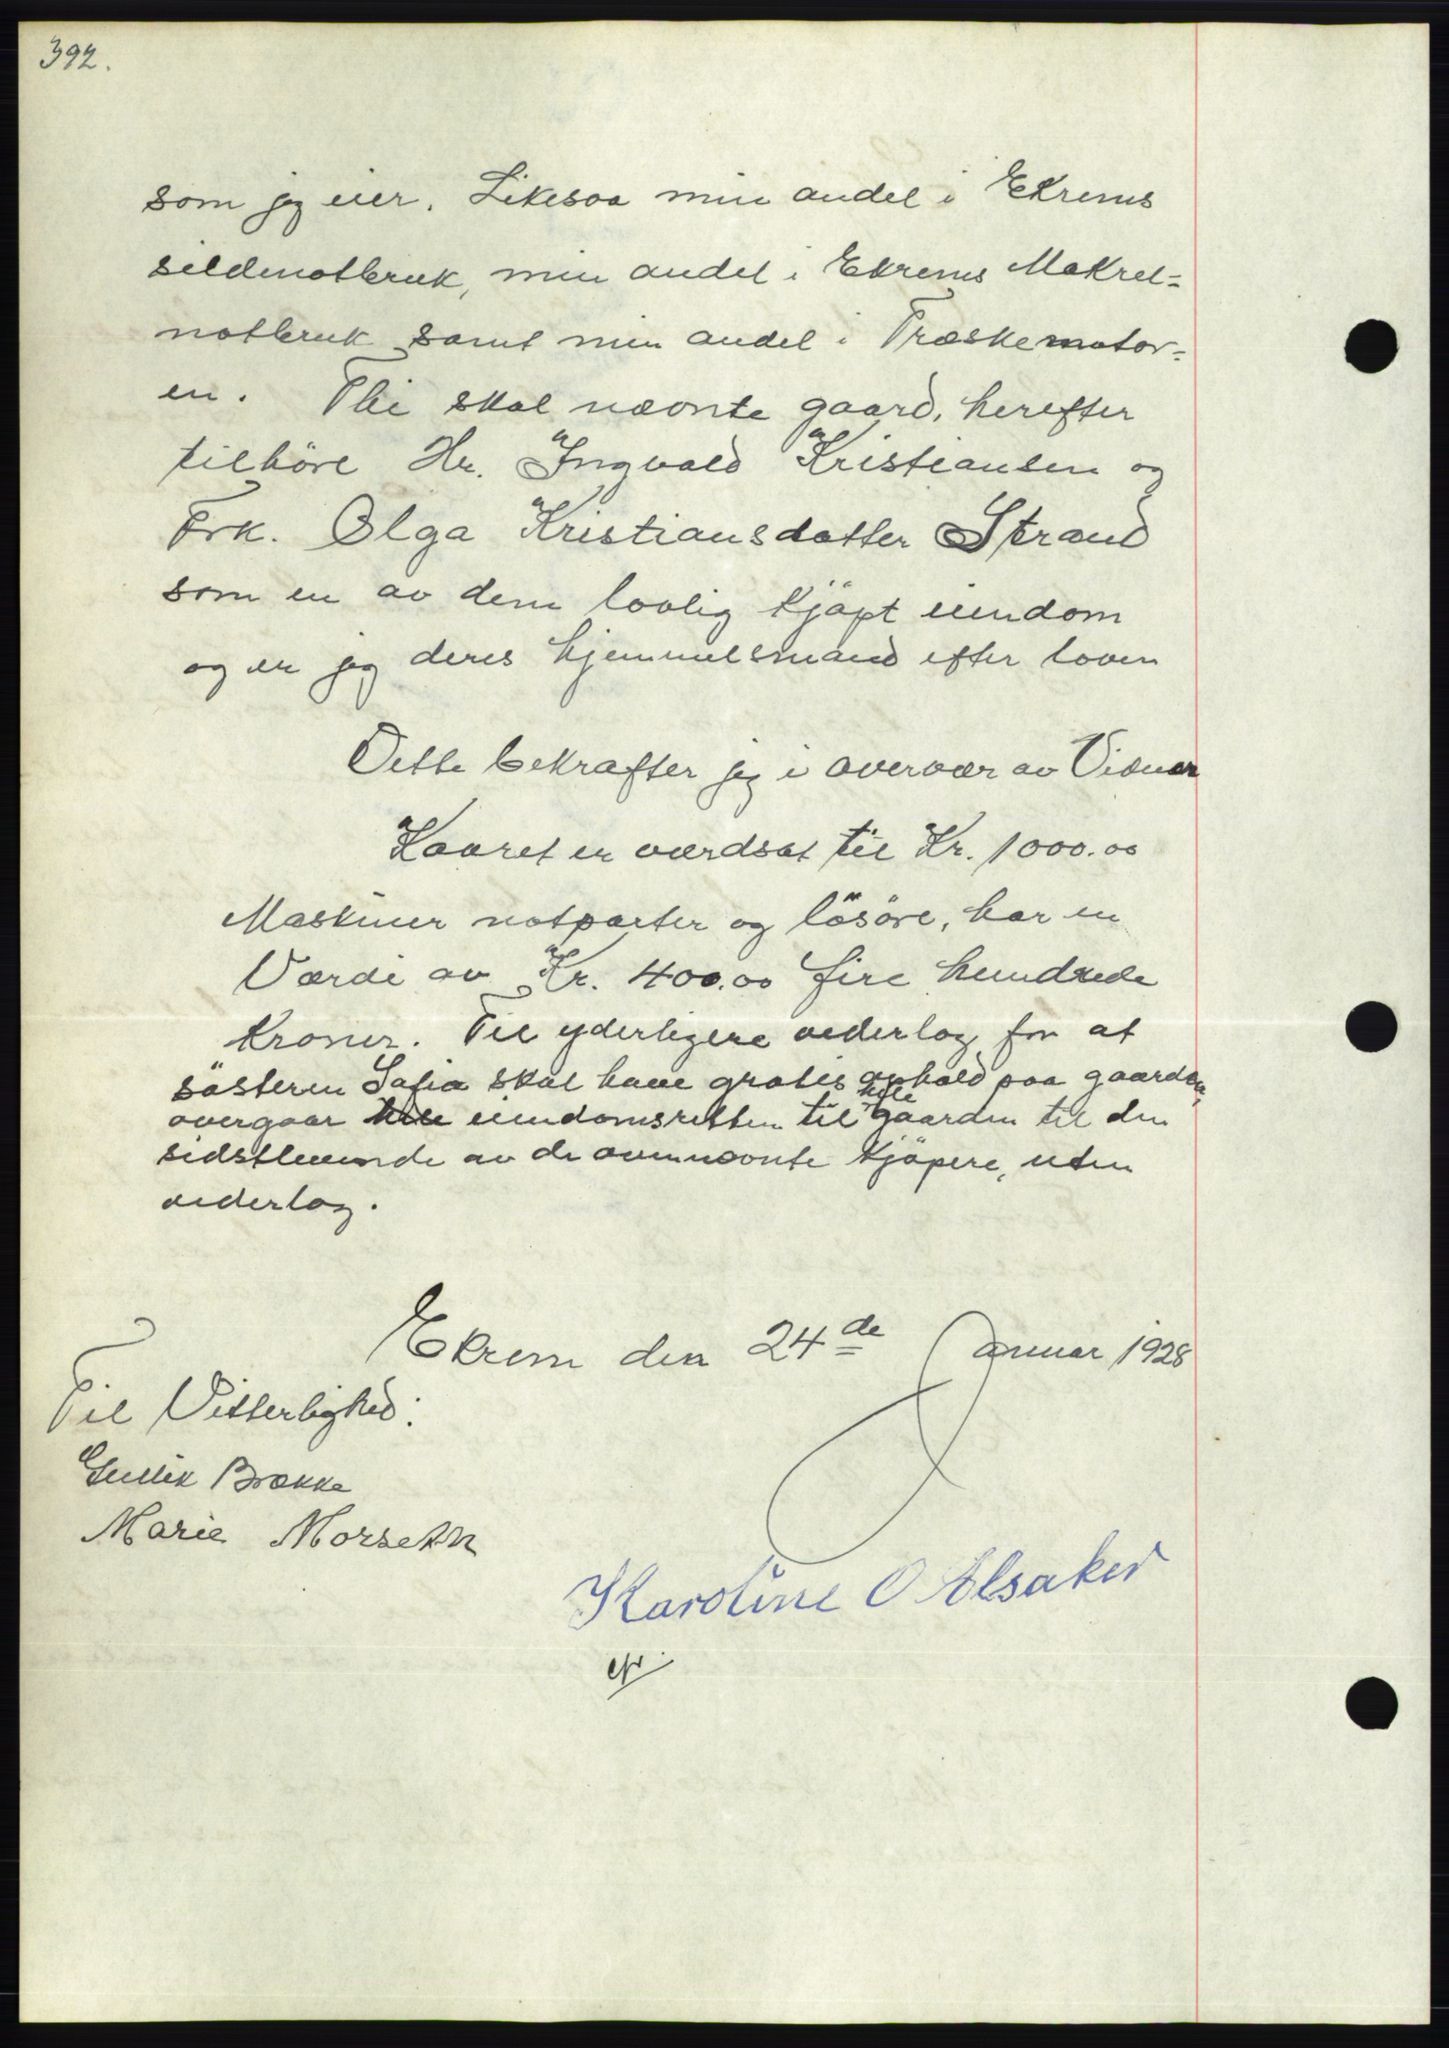 392.
som jeg eier. Likesaa min andel i Ekrems
sildenotbruk, min andel i Ekrems Makrel=
notbruk samt min andel i Træskemotor=
en. Thi skal nævnte gaard, herefter
tilhöre Hr. Ingvald Kristiansen og
Frk. Olga Kristiansdatter Strand
som en av dem lovlig kjöpt eiendom
og er jeg deres hjemmelsmand efter loven
Dette bekræfter jeg i overvær av Vidner
Kaaret er værdsat til Kr. 1000.00
Maskiner notparter og lösöre, har en
Værdi av Kr. 400.00 fire hundrede
Kroner. Til yderligere vederlag for at
sösteren Safia skal have gratis ophold paa gaarden,
overgaar hele eiendomsretten til hele gaarden til den
sidstlevende av de ovennævnte kjöpere, uten
vederlag.
Ekrem den 24de Januar 1928
Til Vitterlighed:
Gullik Brække
Marie Morseth
Karoline O Alsaker